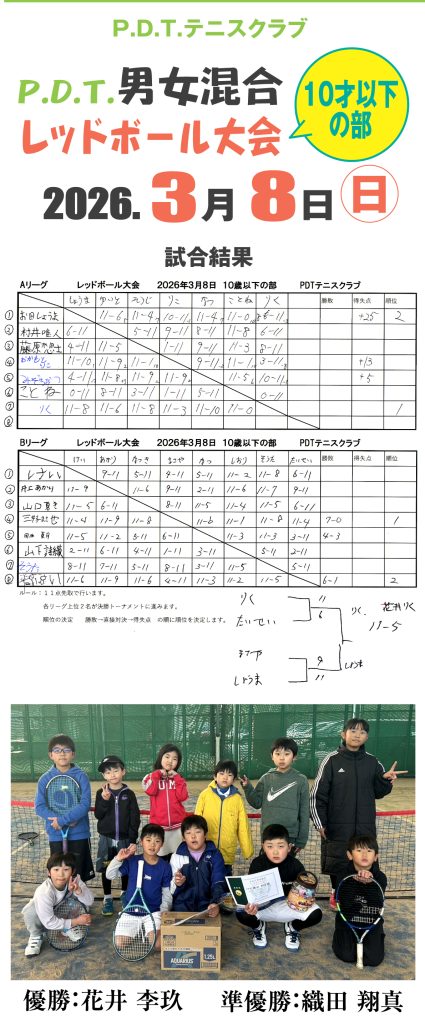 P.D.T.テニスクラブ
P.D.T.男女混合
レッドボール大会
10才以下
の部
2026.3月8日 日
試合結果
Aリーグ レッドボール大会 2026年3月8日 10歳以下の部 PDTテニスクラブ
しょうま りこ なつ ことね りく 勝敗 得失点 順位
① 11-6 11-4 10-11 11-4 11-0 +25 2
② 村井 6-11 5-11 9-11 8-11 11-8 6-11
③ 藤原 4-11 11-5 1-11 9-11 11-3 8-11
④ 11-10 11-9 11-1 9-11 11-1 3-11 +13
⑤ 4-11 11-8 11-9 11-9 11-5 10-11 +5
⑥ ことね 0-11 8-11 3-11 1-11 5-11 0-11
⑦ りく 11-8 11-6 11-8 11-3 11-10 11-0 1
⑧
Bリーグ レッドボール大会 2026年3月8日 10歳以下の部 PDTテニスクラブ
けい あかり なつき なつ しおり そうた たいせい 勝敗 得失点 順位
① 9-11 5-11 4-11 5-11 11-2 8-11 6-11
② 井上あかり 11-9 11-6 9-11 2-11 11-6 11-7 9-11
③ 山口 11-5 6-11 8-11 11-5 11-4 11-5 6-11
④ 11-4 11-9 11-8 11-6 11-1 11-8 11-4 7-0 1
⑤ 11-5 11-2 5-11 6-11 11-3 11-3 3-11 4-3
⑥ 山下 2-11 6-11 4-11 1-11 3-11 5-11 2-11
⑦ そうた 8-11 7-11 5-11 8-11 3-11 11-5 5-11
⑧ 11-6 11-9 11-6 4-11 11-3 11-2 11-5 6-1 2
ルール:11点先取で行います。
各リーグ上位2名が決勝トーナメントに進みます。
順位の決定 勝敗→直接対決→得失点 の順に順位を決定します。
りく 11
たいせい 6
りく 花井りく
11-5
9
しょうま 11
しょうま
AQUARIUS
1.25L
優勝:花井 李玖 準優勝:織田 翔真